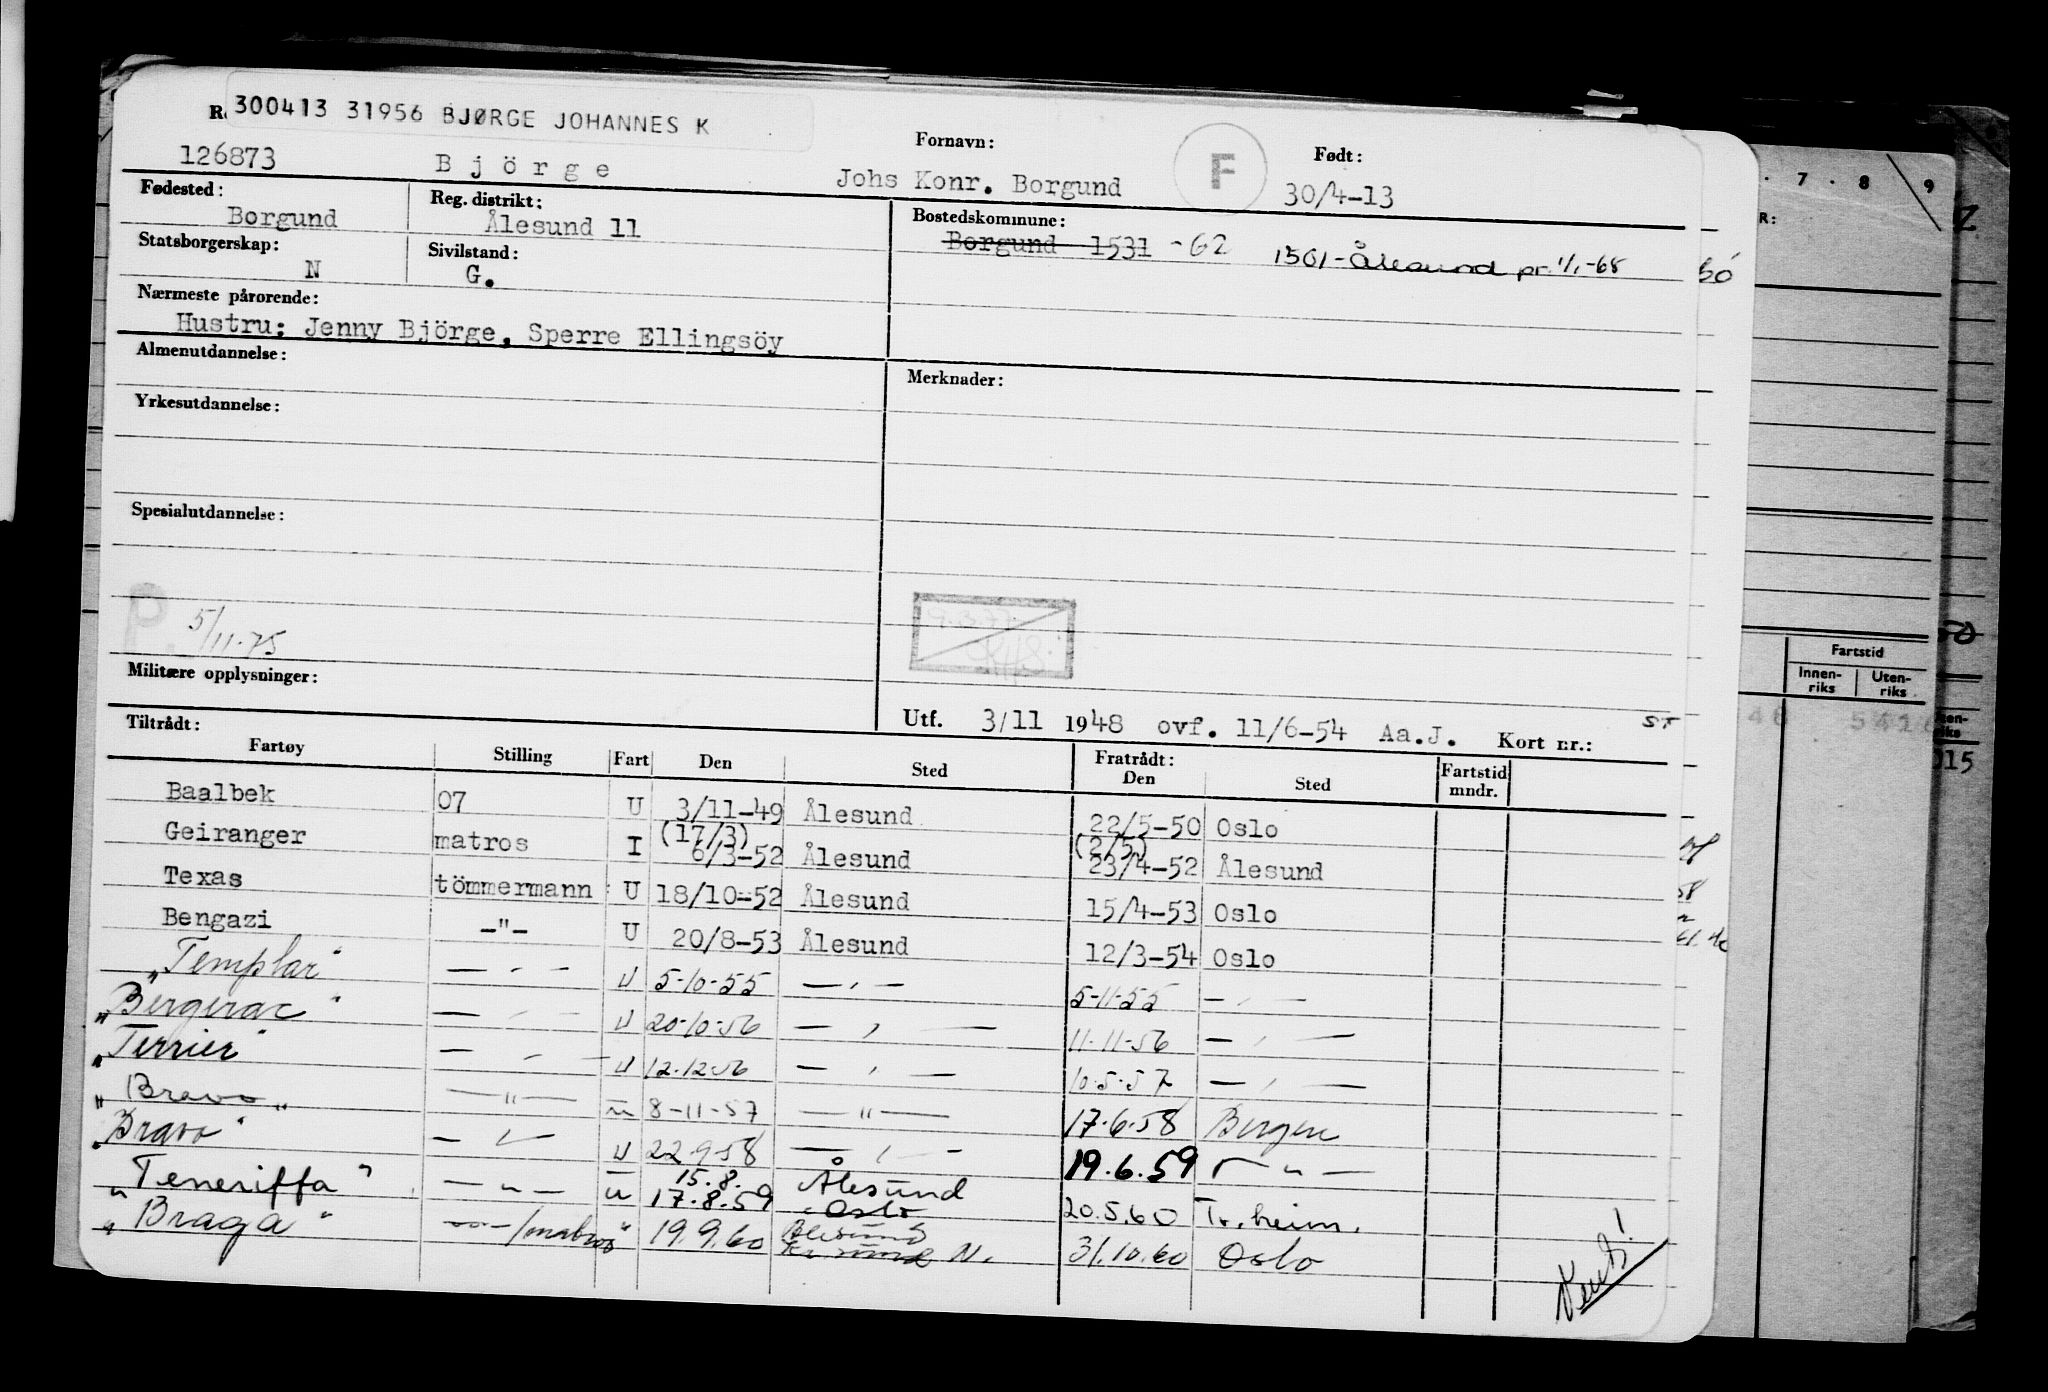 300413 31956 BJØRGE JOHANNES K
126873 Björge
Fornavn: Johs Konr. Borgund
F
Født: 30/4-13
Fødested: Borgund
Reg. distrikt: Ålesund 11
Bostedskommune: Borgund 1531 -62 1501-Ålesund pr. 1/1-68
Statsborgerskap: N
Sivilstand: G.
Nærmeste pårørende:
Hustru: Jenny Björge, Sperre Ellingsöy
Almenutdannelse:
Merknader:
Yrkesutdannelse:
Spesialutdannelse:
P. 5/11-75
Militære opplysninger:
Utf. 3/11 1948 ovf. 11/6-54 Aa.J. Kort nr.: ST
Tiltrådt: Fratrådt:
Fartøy Stilling Fart Den Sted Den Sted Fartstid mndr.
Baalbek 07 U 3/11-49 Ålesund 22/5-50 Oslo
(17/3) (2/5)
Geiranger matros I 6/3-52 Ålesund 23/4-52 Ålesund
Texas tömmermann U 18/10-52 Ålesund 15/4-53 Oslo
Bengazi -"- U 20/8-53 Ålesund 12/3-54 Oslo
"Templar" - " - U 5-10-55 - " - 5-11-55 - " -
"Bergerac" - " - U 20-10-56 - " - 11-11-56 - " -
"Terrier" - " - U 12.12.56 - " - 10.5.57 - " -
"Bravo" - " - u 8-11-57 - " - 17.6.58 Bergen
"Bravo" - " - U 22.9.58 - " - 19.6.59 - " -
15.8. Ålesund
"Teneriffa" - " - u 17.8.59 Oslo 20.5.60 Tr.heim.
"Braga" - " - /matros " 19.9.60 Ålesund N. 31.10.60 Oslo
Vent!
7 . 8 . 9
R:
Fartstid
Innenriks Utenriks